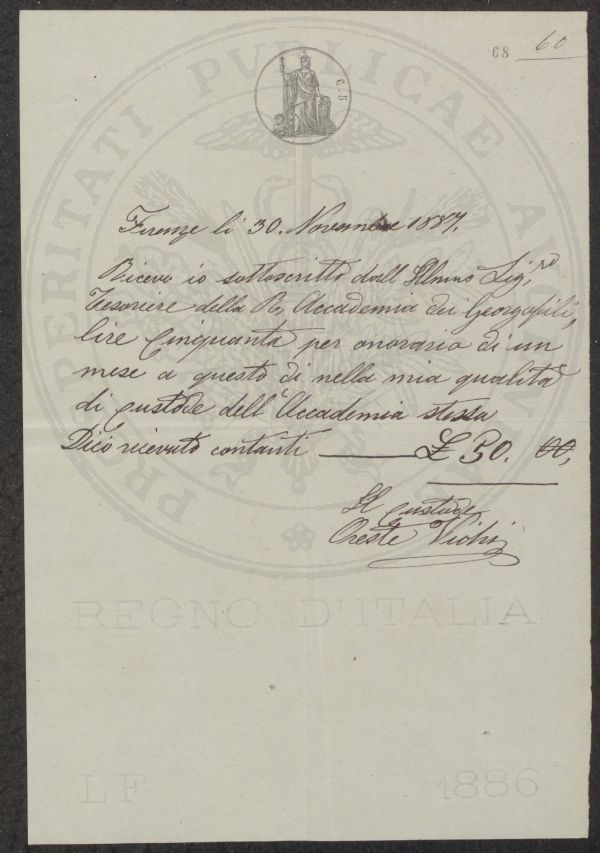 68 60
PROSPERITATI PVBLICAE AVGENDAE
C. 5
Firenze li 30. Novembre 1887.
Ricevo io sottoscritto dall Illmo Sig.re
Tesoriere della R. Accademia dei Georgofili,
lire Cinquanta per onorario di un
mese a questo dì nella mia qualità
di custode dell'Accademia stessa
Dico ricevuto contanti £ 50. 00,
Il custode
Oreste Vichi
REGNO D'ITALIA
LF 1886